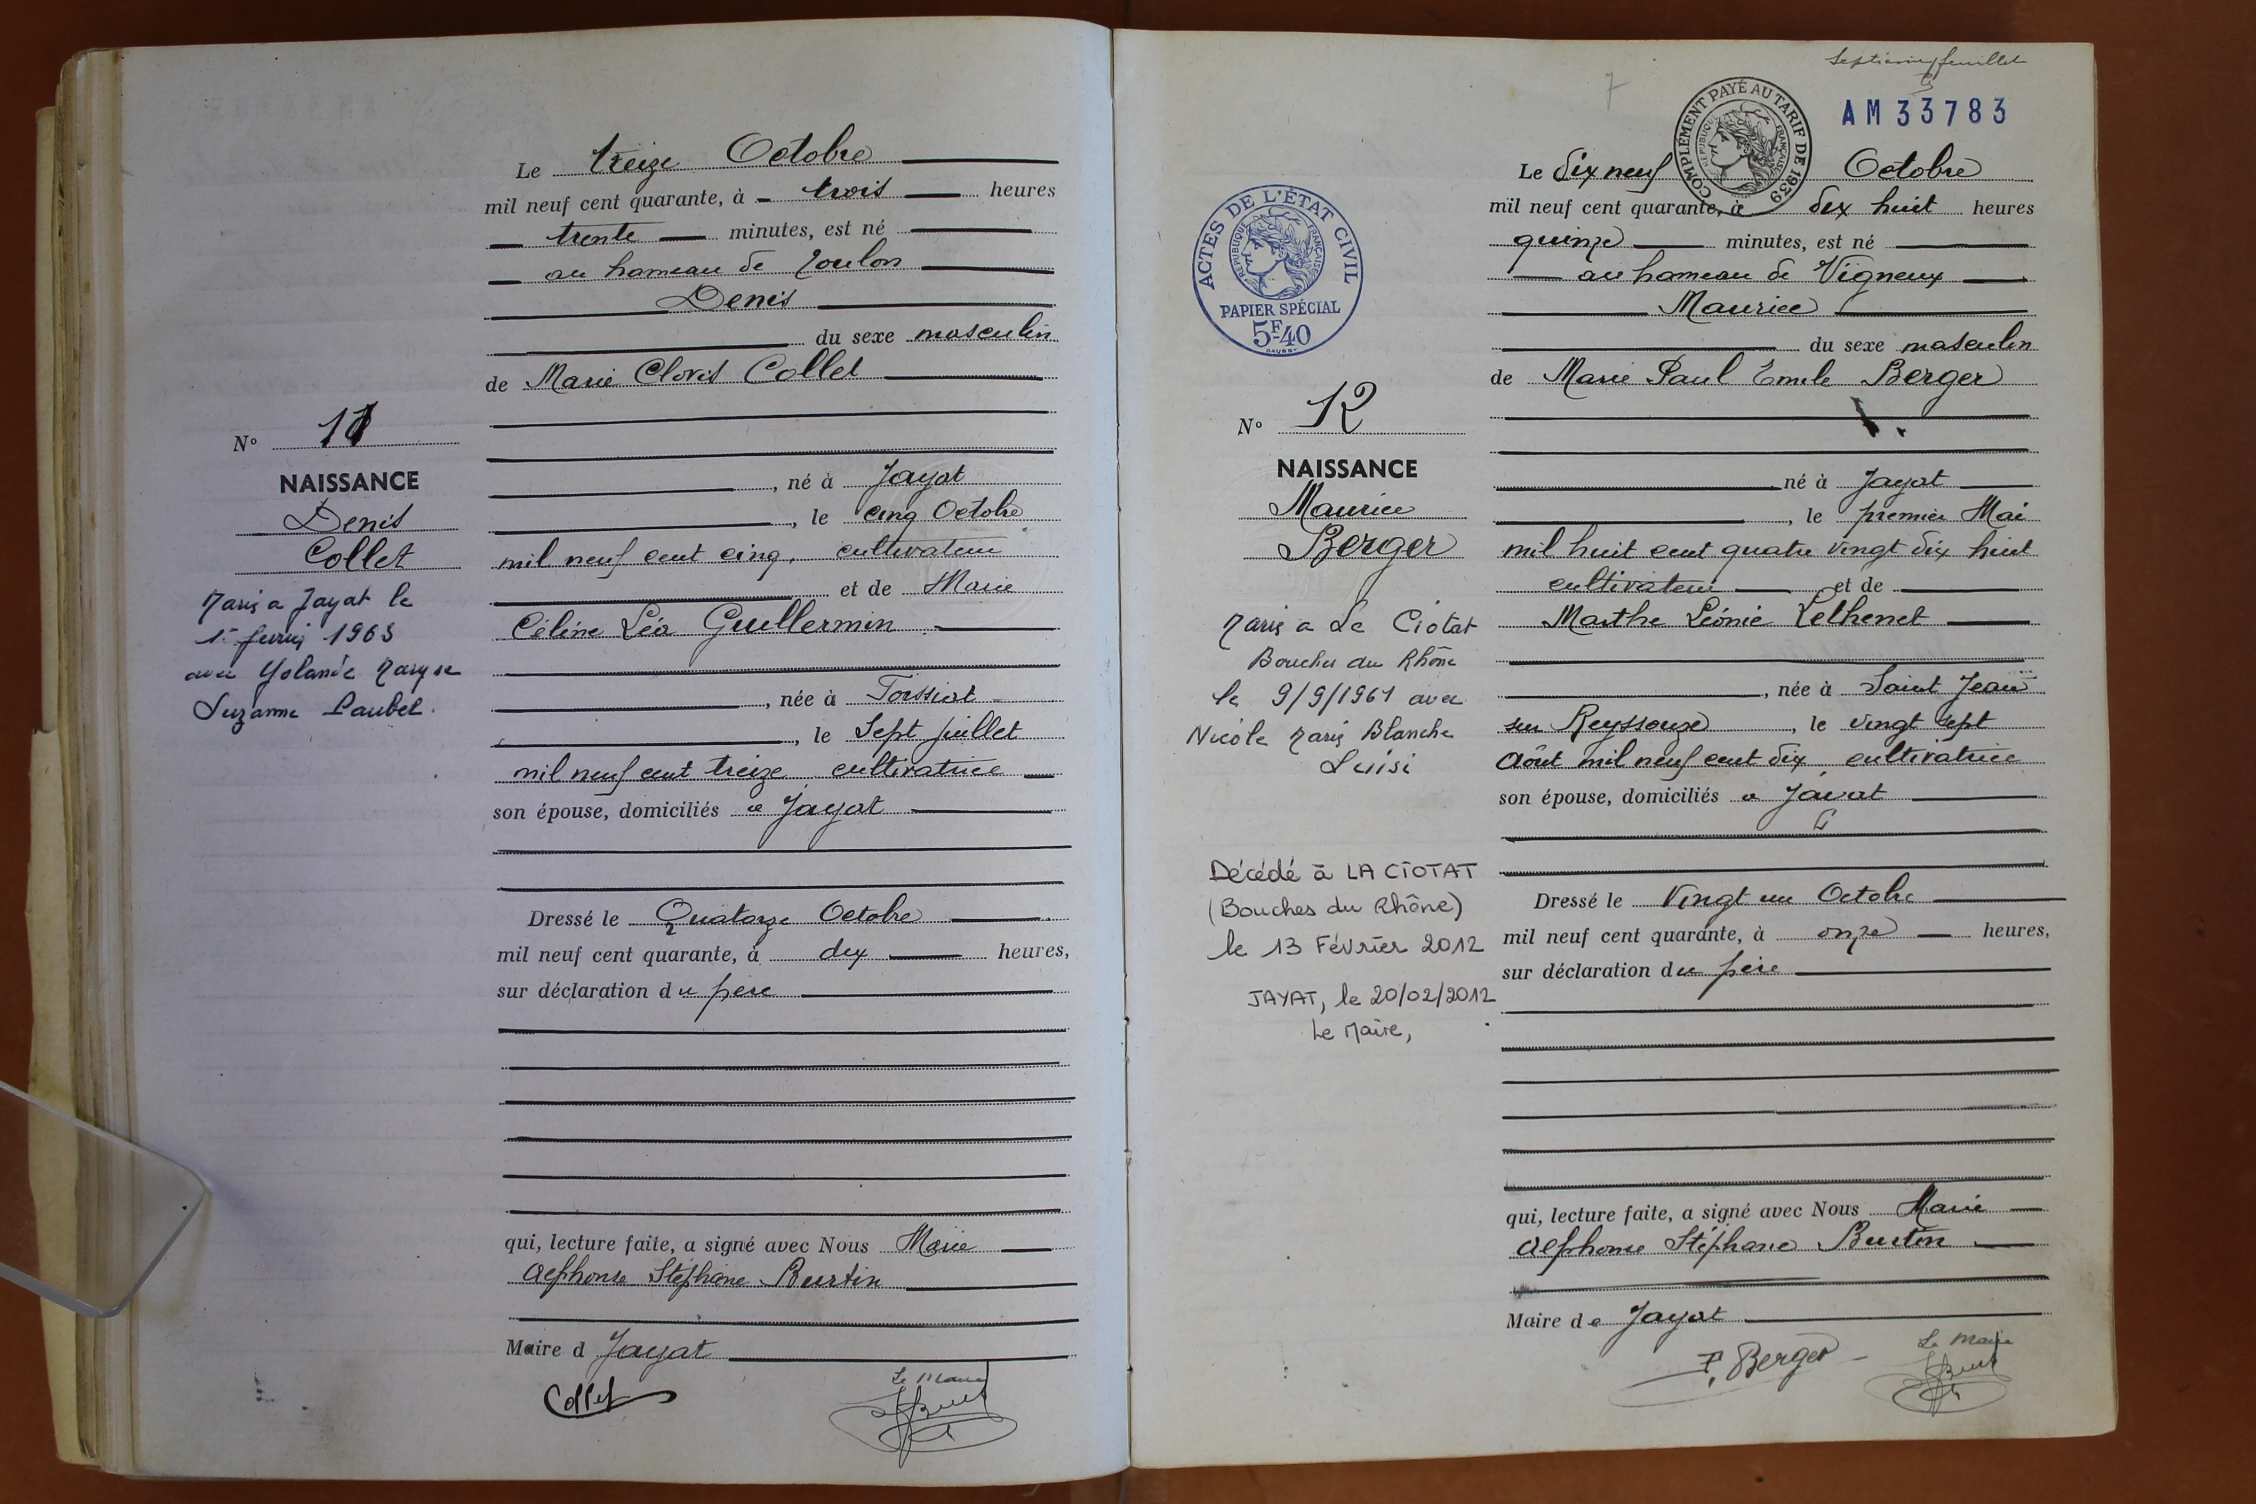 Le treize Octobre
mil neuf cent quarante, à trois heures
trente minutes, est né
au hameau de Toulon
Denis
du sexe masculin
de Marie Clovis Collet
N° 11
NAISSANCE
Denis
Collet
Marié a Jayat le
1er fevrier 1963
avec Yolande Maryse
Suzanne Laubel.
, né à Jayat
, le cinq Octobre
mil neuf cent cinq, cultivateur
et de Marie
Céline Léa Guillermin
, née à Torssiat
, le Sept juillet
mil neuf cent treize cultivatrice
son épouse, domiciliés a Jayat
Dressé le Quatorze Octobre
mil neuf cent quarante, à dix heures,
sur déclaration du pere
qui, lecture faite, a signé avec Nous Marie
Alphonse Stéphane Burtin
Maire d Jayat
Collet
Le Maire
Septième feuillet
7
COMPLÉMENT PAYÉ AU TARIF DE 1939
RÉPUBLIQUE FRANÇAISE
AM 33783
ACTES DE L'ÉTAT CIVIL
RÉPUBLIQUE FRANÇAISE
PAPIER SPÉCIAL
5F40
Le dix neuf Octobre
mil neuf cent quarante, à dix huit heures
quinze minutes, est né
au hameau de Vigneux
Maurice
du sexe masculin
de Marie Paul Emile Berger
N° 12
NAISSANCE
Maurice
Berger
Marié a La Ciotat
Bouches du Rhône
le 9/9/1961 avec
Nicole Marie Blanche
Luisi
Décédé à LA CIOTAT
(Bouches du Rhône)
le 13 Février 2012
JAYAT, le 20/02/2012
Le Maire,
né à Jayat
, le premier Mai
mil huit cent quatre vingt dix huit
cultivateur et de
Marthe Léonie Lethenet
, née à Saint Jean
sur Reyssouze, le vingt sept
Août mil neuf cent dix, cultivatrice
son épouse, domiciliés a Jayat
Dressé le Vingt un Octobre
mil neuf cent quarante, à onze heures,
sur déclaration du père
qui, lecture faite, a signé avec Nous Marie
Alphonse Stéphane Burtin
Maire de Jayat
Berger
Le Maire